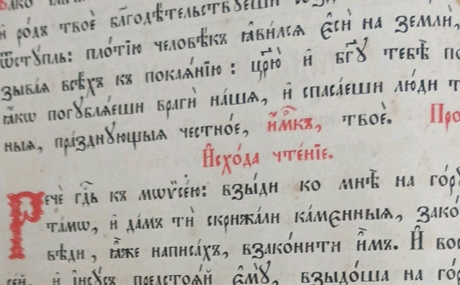 и҆ ро́дъ твоѐ бл҃годѣ́тельствꙋеши
ѿстꙋпль: пло́тїю человѣ́къ ꙗ҆ви́лсѧ є҆сѝ на землѝ,
зыва́ѧ всѣ́хъ къ покаѧ́нїю: цр҃ю̀ и҆ бг҃ꙋ тебѣ̀
ꙗ҆́кѡ погꙋблѧ́еши врагѝ на́шѧ, и҆ спаса́еши лю́ди
ныѧ, пра́зднꙋющыѧ честно́е, и҆́мкъ, твоѐ. Про
И҆схо́да чте́нїе.
Речѐ гдⷭ҇ь къ мѡѷсе́ю: взы́ди ко мнѣ̀ на го́рꙋ
та́мѡ, и҆ да́мъ тѝ скрижа́ли ка́менныѧ, зако́
вѣди, ꙗ҆̀же написа́хъ, взакони́ти и҆̀мъ. И҆ во
сей, и҆ і҆исꙋ́съ предстоѧ́й є҆мꙋ̀, взыдо́ша на го́